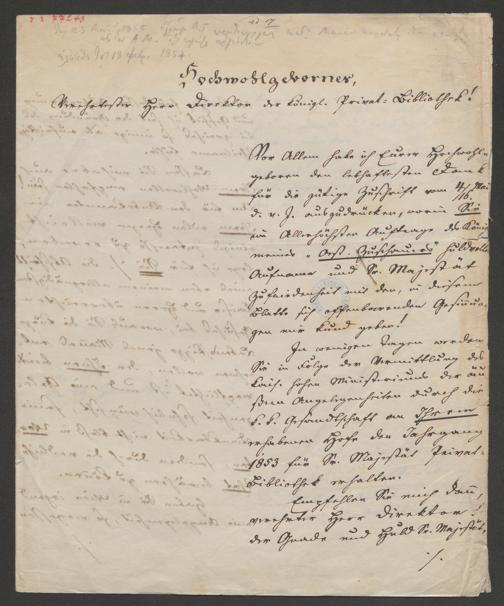 Hochwohlgeborner,
Verehrtester Herr Direktor der königl. Privat-Bibliothek!
Vor Allem habe ich Eurer Hochwohl-
geboren den lebhaftesten Dank
für die gütige Zuschrift vom 4/16. Mai
d. J. auszudrücken, worin Sie
im Allerhöchsten Auftrage des Königs
meines "Oest. Zuschauers" huldvolle
Aufname und Sr. Majestät
Zufriedenheit mit den, in diesem
Blatte sich offenbarenden Gesinnun-
gen mir kund geben!
In wenigen Tagen werden
Sie in Folge der Vermittlung des
kais. hohen Ministeriums der äu-
ßern Angelegenheiten durch die
k. k. Gesandtschaft an Ihrem
erhabenen Hofe den Jahrgang
1853 für Sr. Majestät Privat-
Bibliothek erhalten.
Empfehlen Sie mich dann,
verehrter Herr Direktor!
der Gnade und Huld Sr. Majestät,
./.